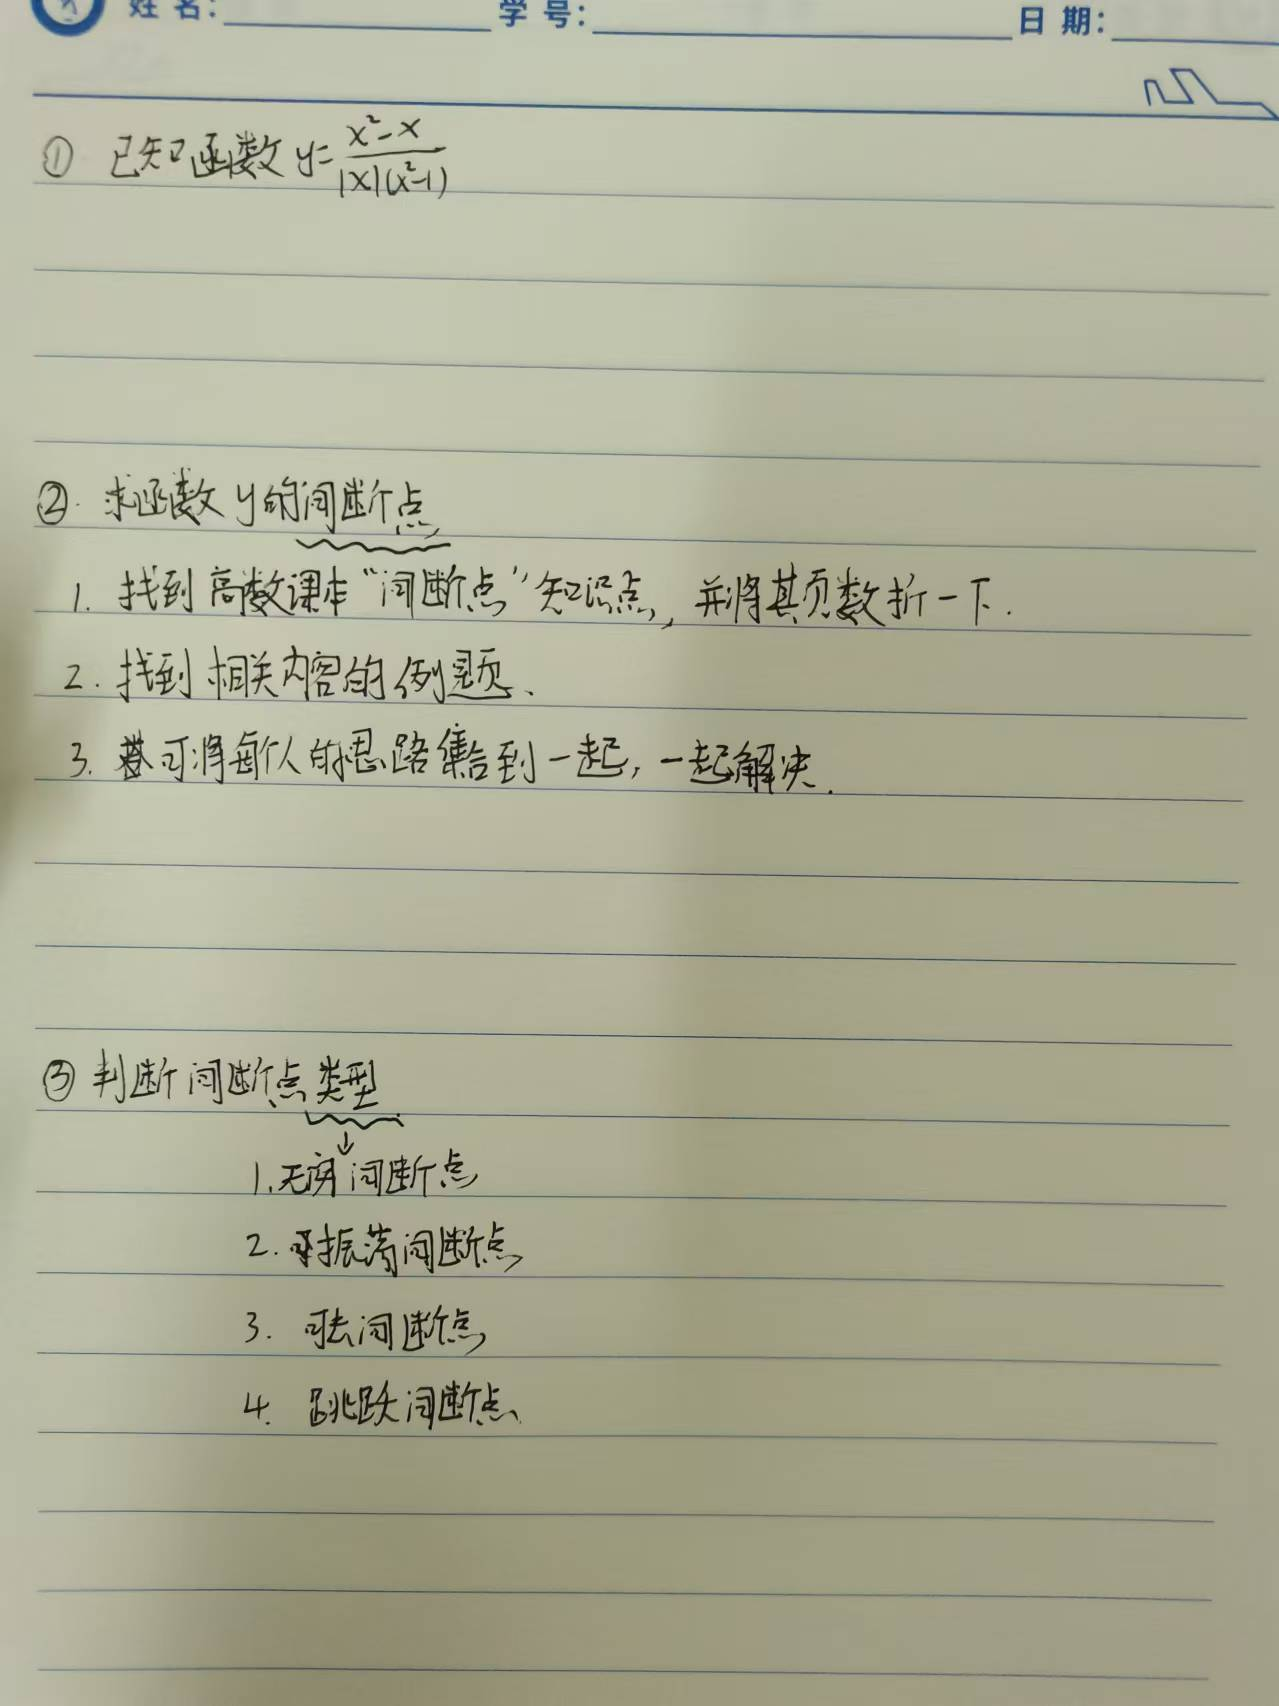 姓名: 学号: 日期:
① 已知函数 y= x²-x / |x|(x²-1)
②. 求函数 y 的间断点
1. 找到高数课本“间断点”知识点, 并将其页数折一下.
2. 找到相关内容的例题、
3. 可将每个人的思路集合到一起, 一起解决.
③ 判断间断点类型
↓
1. 无穷间断点
2. 振荡间断点
3. 可去间断点
4. 跳跃间断点